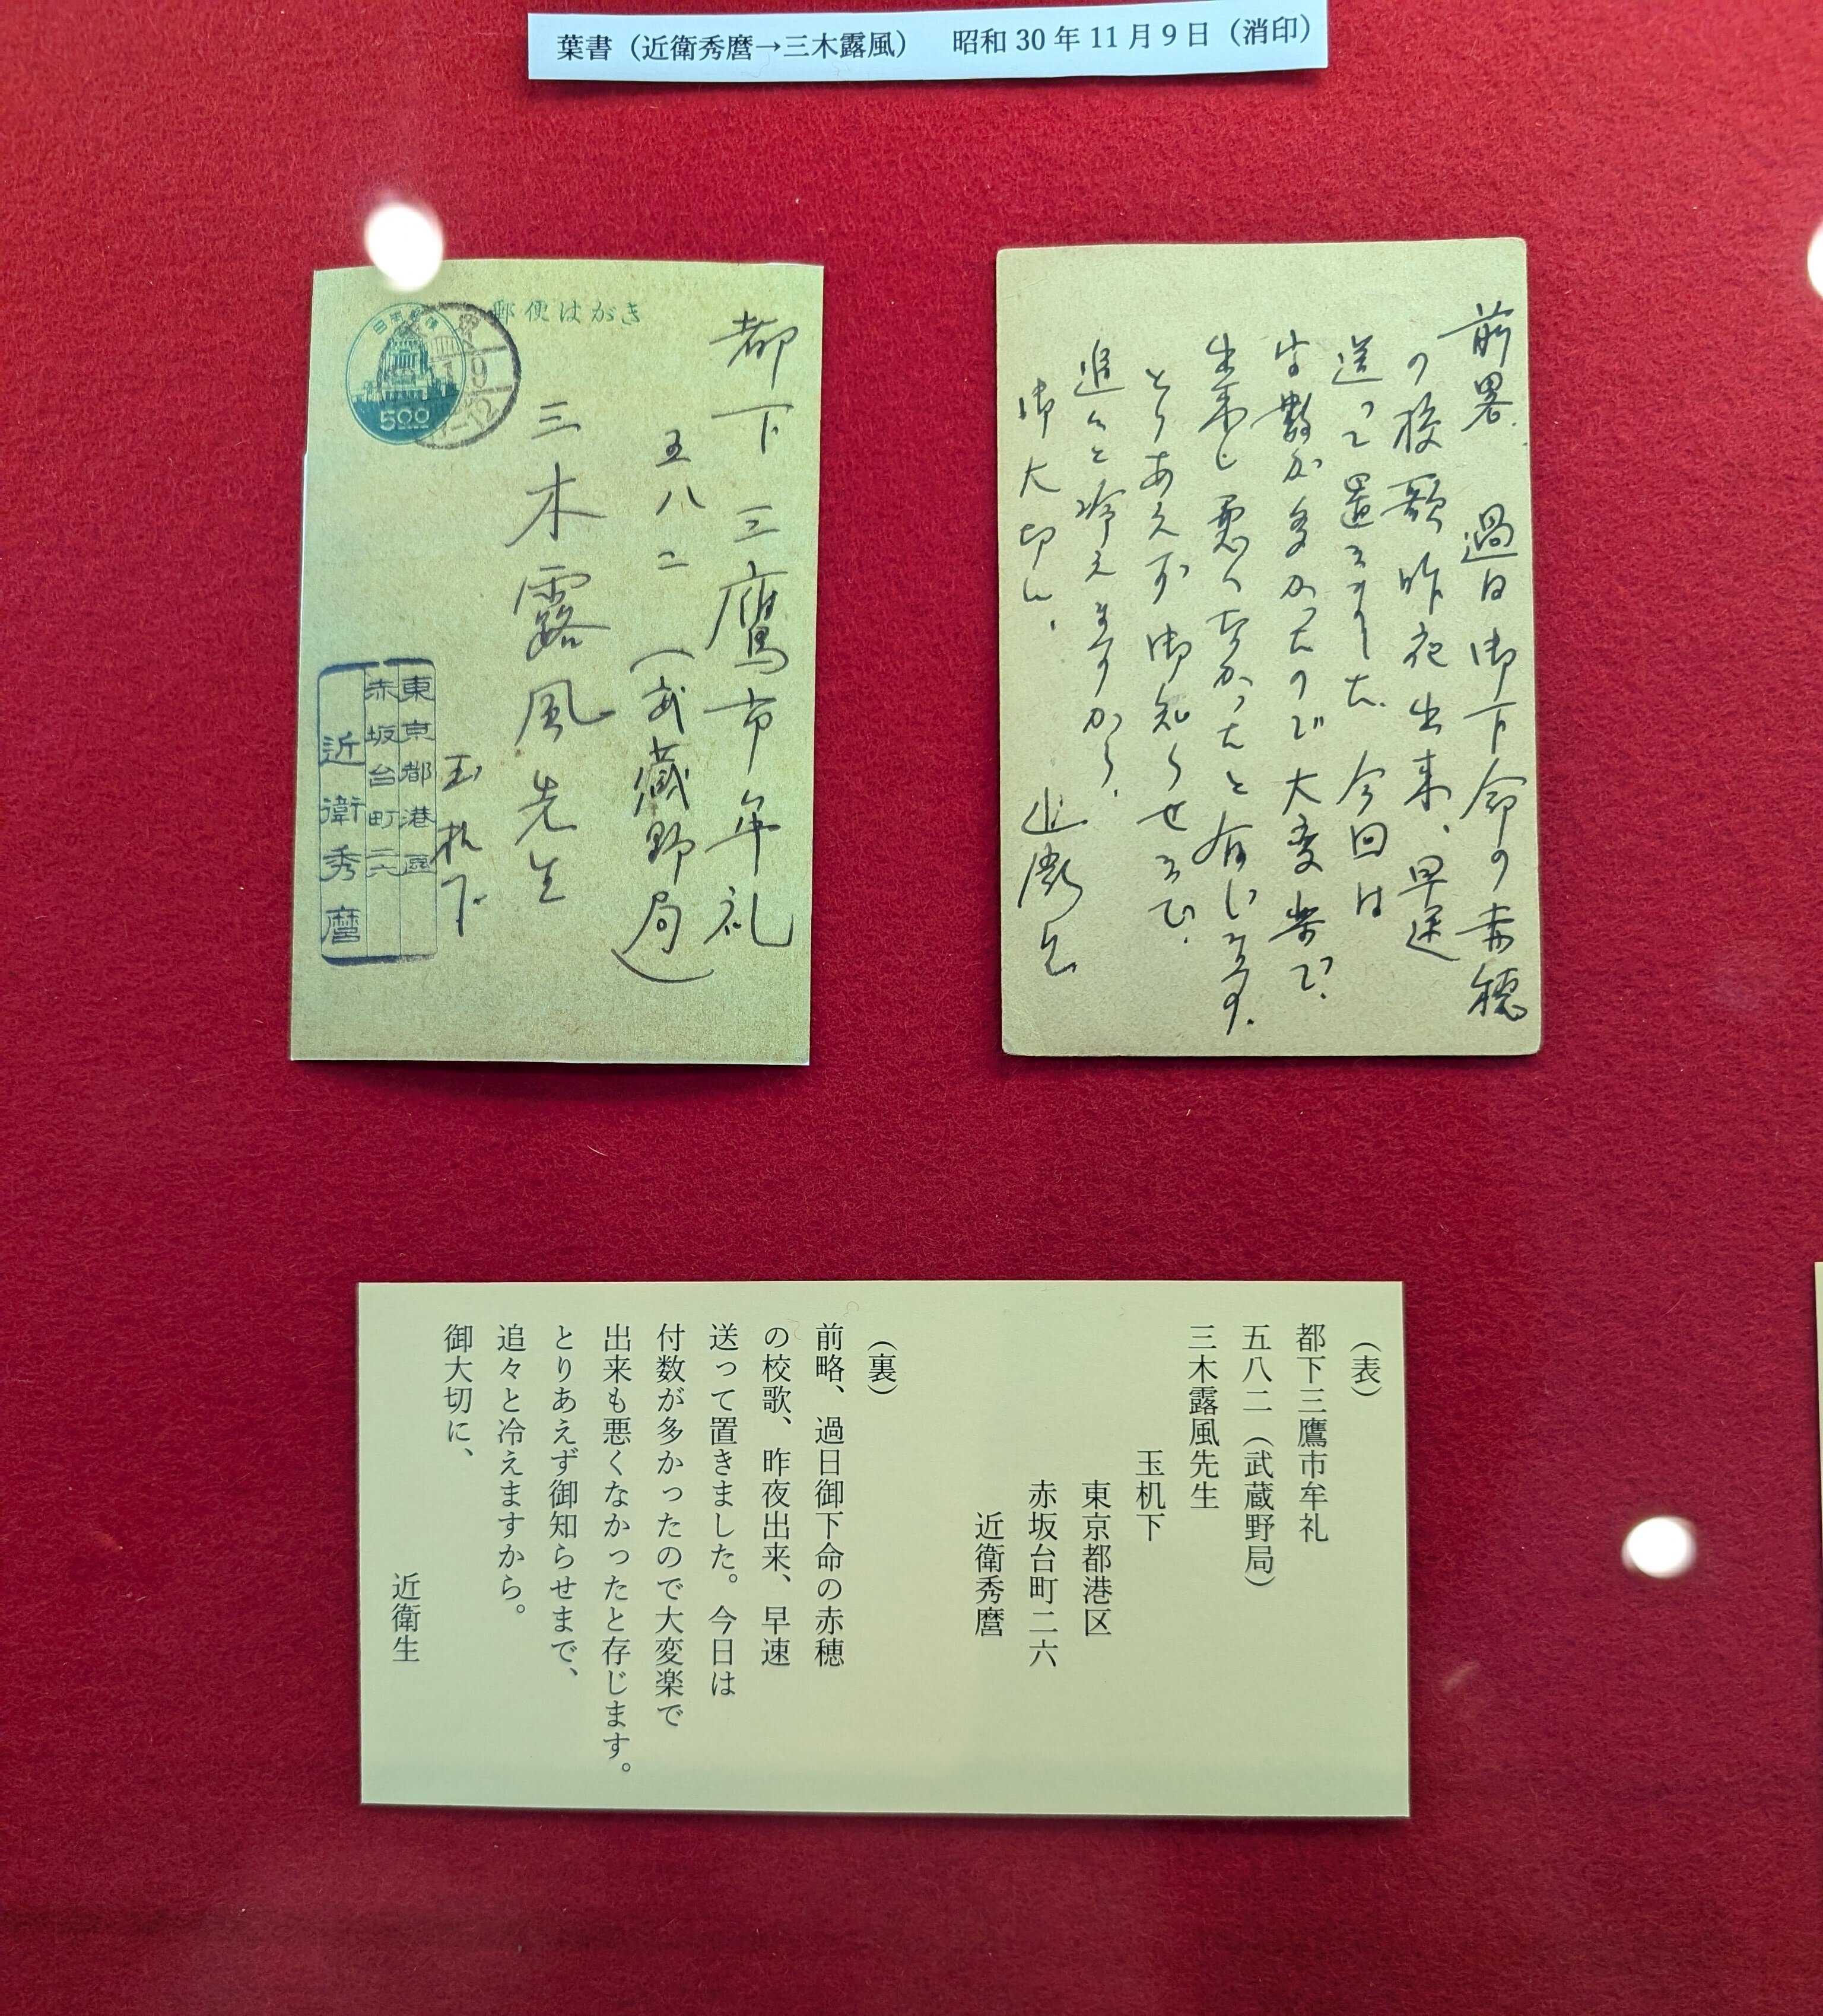 葉書（近衛秀麿→三木露風）　昭和 30 年 11 月 9 日（消印）
郵便はがき
日本郵便
500
都下三鷹市牟礼
五八二（武蔵野局）
三木露風先生
玉机下
東京都港區
赤坂台町二六
近衛秀麿
前畧、過日御下命の赤穂
の校歌昨夜出来、早速
送って置きました。今回は
字数が多かったので大変楽で、
出来も悪くなかったと存じます。
とりあえず御知らせまで、
追々と冷えますから、
御大切に、
近衛生
（表）
都下三鷹市牟礼
五八二（武蔵野局）
三木露風先生
玉机下
東京都港区
赤坂台町二六
近衛秀麿
（裏）
前略、過日御下命の赤穂
の校歌、昨夜出来、早速
送って置きました。今日は
付数が多かったので大変楽で
出来も悪くなかったと存じます。
とりあえず御知らせまで、
追々と冷えますから。
御大切に、
近衛生